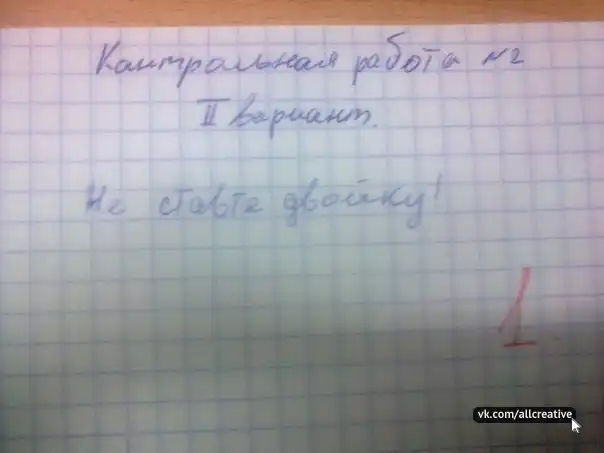 Контрольная работа №2
II вариант.
Не ставте двойку!
1
vk.com/allcreative